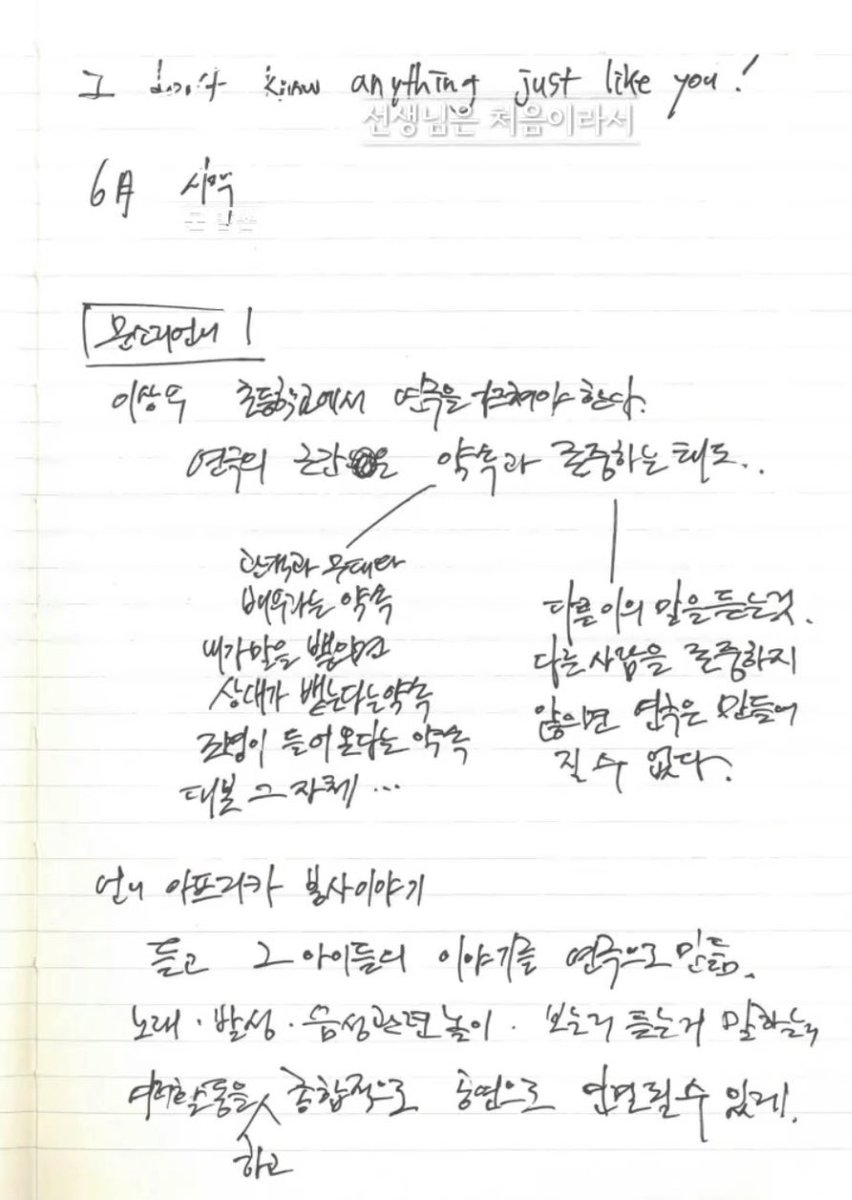 I don't know anything just like you!
선생님은 처음이라서
6月 시작
문소리언니 1
이상우 초등학교에서 연극을 가르쳐야 한다.
연극의 근간은 약속과 존중하는 태도..
관객과 무대와
배우라는 약속
내가 말을 뱉으면
상대가 뱉는다는 약속
조명이 들어온다는 약속
대본 그 자체 ...
다른이의 말을 듣는것.
다른 사람을 존중하지
않으면 연극은 만들어
질 수 없다.
언니 아프리카 봉사이야기
듣고 그 아이들의 이야기를 연극으로 만듦.
노래 · 발성 · 음성관련놀이 · 보는거 듣는거 말하는거
여러활동을 종합적으로 공연으로 연결될수 있게.
하고